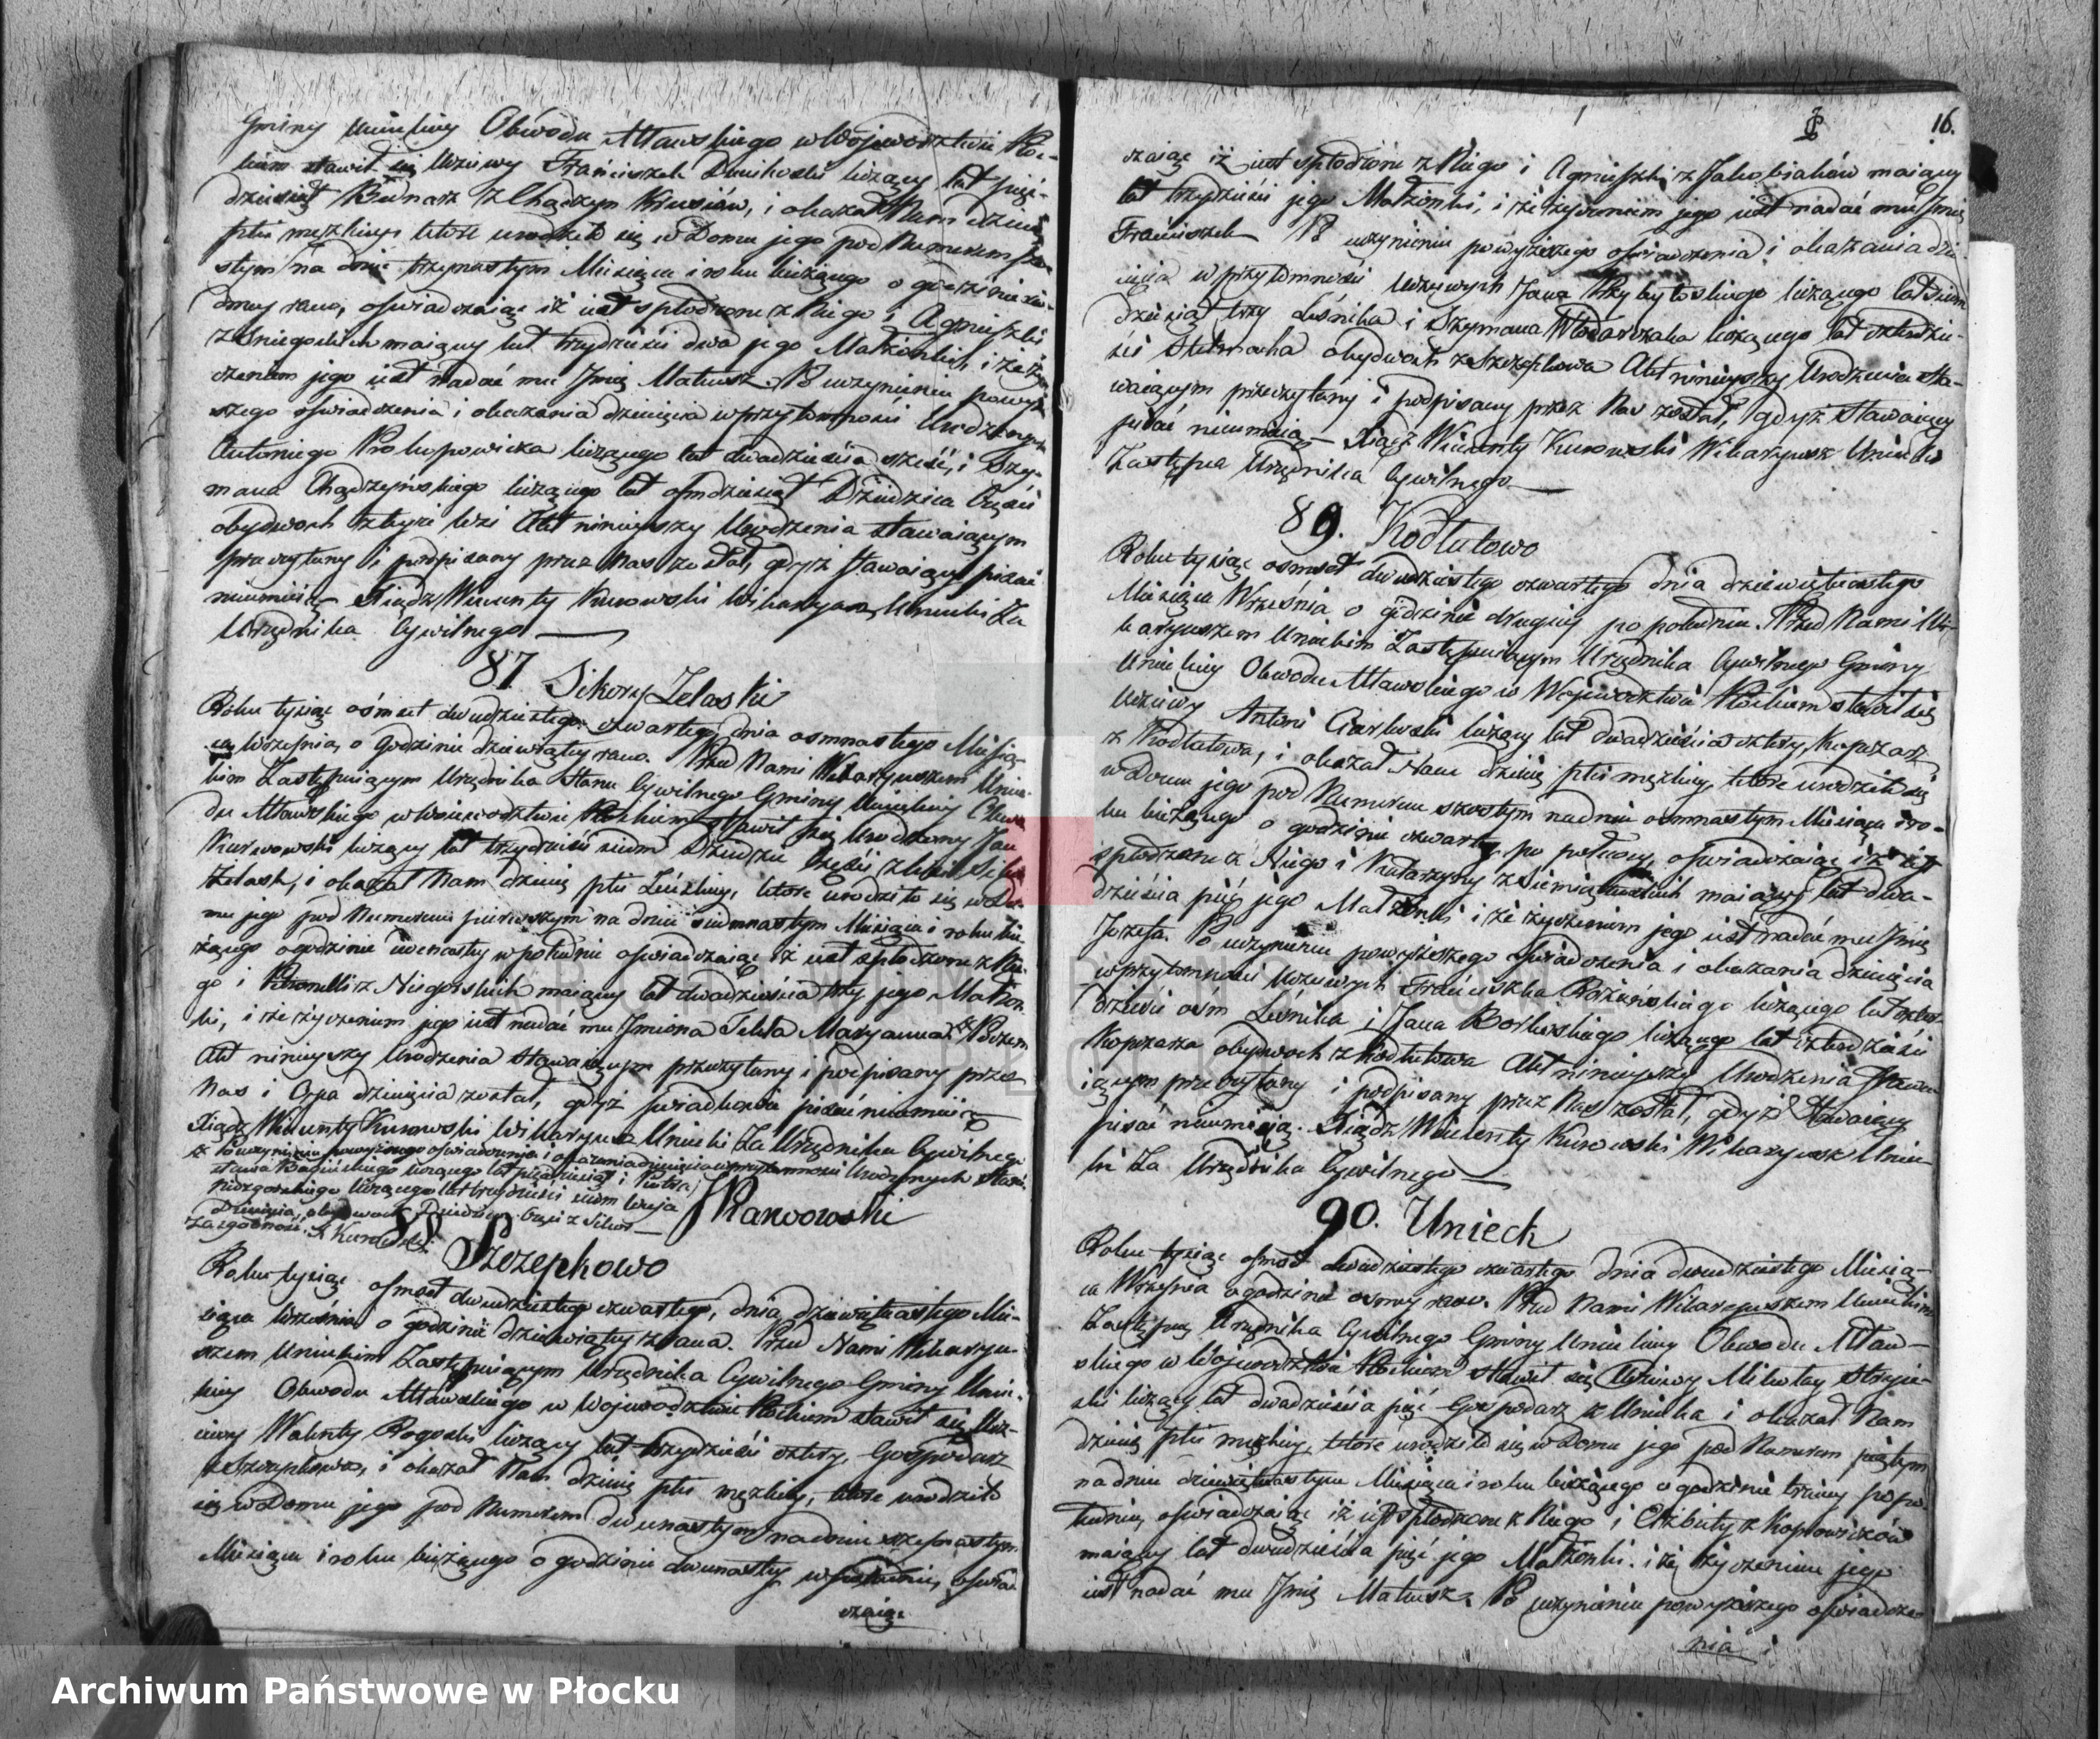 Gminy Unieckiey Obwodu Mławskiego w Wojewodztwie Płoc-
kiem stawił się Uczciwy Franciszek liczący lat pięć-
dziesiąt Bednarz z Chądzyn Krusiów, i okazał Nam dziecię
płci męzkiey które urodziło się w Domu jego pod Numerem
stym na dniu trzynastym Miesiąca i roku bieżącego o godzinie sió-
dmey rano, oświadczaiąc iż iest spłodzone z Niego i Agnieszki
z Śniegockich maiącey lat trzydzieści dwa jego Małżonki, i że ży-
czeniem jego iest nadać mu Jmię Mateusz. Po uczynieniu powyż-
szego oświadczenia i okazania dziecięcia w przytomności Urodzonych
Antoniego Prokopowicza liczącego lat dwadzieścia sześć, i Szy-
mana Chądzyńskiego liczącego lat ośmdziesiąt Dziedzica Części
obydwoch z teyże Wsi Akt ninieyszy Urodzenia stawaiącym
przeczytany i podpisany przez Nas został, gdyż stawaiący pisać
nieumieią Xiądz Wincenty Kurowski Wikaryusz Uniecki Za
Urzędnika Cywilnego
87 Sikory Zelaski
Roku tysiąc ośmset dwudziestego czwartego dnia osmnastego Miesią-
ca Września, o Godzinie dziewiątey rano. Przed Nami Wikaryuszem Uniec-
kim Zastępuiącym Urzędnika Stanu Cywilnego Gminy Unieckiey Obwo-
du Mławskiego w Woiewodztwie Płockiem stawił się Urodzony Jan
Karwowski liczący lat trzydzieści siedm Dziedzic Części z Sikor
Zelask, i okazał Nam dziecię płci Żeńskiey, które urodziło się w Do-
mu jego pod Numerem pierwszym na dniu siedmnastym Miesiąca i roku bie-
żącego o godzinie dwunastey w południe oświadczaiąc iż iest spłodzone z Nie-
go i Petronelli z Niegorskich maiącey lat dwadzieścia trzy jego Małżon-
ki, i że życzeniem jego iest nadać mu Jmiona Tekla Maryanna
Akt ninieyszy Urodzenia stawaiącym przeczytany i podpisany przez
Nas i Oyca dziecięcia został, gdyż świadkowie pisać nieumieią
Xiądz Wincenty Kurowski Wikaryusz Uniecki Za Urzędnika Cywilnego
Po uczynieniu powyższego oświadczenia i okazania dziecięcia w przytomności Urodzonych Stani-
sława liczącego lat pięćdziesiąt i Piotra
liczącego lat trzydzieści siedm Wuja
Dziecięcia, obydwoch Dziedziców Części z Sikor
Za zgodność X Kurowski JKarwowski
88 Szczepkowo
Roku tysiąc ośmset dwudziestego czwartego, dnia dziewiętnastego Mie-
siąca Września o godzinie dziewiątey z rana. Przed Nami Wikaryu-
szem Unieckim Zastępuiącym Urzędnika Cywilnego Gminy Uniec-
kiey Obwodu Mławskiego w Wojewodztwie Płockiem stawił się Ucz-
ciwy Walenty Rogoski liczący lat trzydzieści cztery, Gospodarz
z Szczepkowa, i okazał Nam dziecię płci męzkiey, które urodziło
się w Domu jego pod Numerem dwunastym na dniu szesnastym
Miesiąca i roku bieżącego o godzinie dwunastey w południe, oświad
czaiąc
16.
czaiąc iż iest spłodzone z Niego i Agnieszki z Jakobiaków maiącey
lat trzydzieści jego Małżonki, i że życzeniem jego iest nadać mu Jmię
Franciszek Po uczynieniu powyższego oświadczenia i okazania dzie-
cięcia w przytomności Uczciwych Jana Przybytoskiego liczącego lat siedm
dziesiąt trzy Leśnika i Szymana Włodarczaka liczącego lat czterdzie-
ści Stelmacha obydwoch z Szczepkowa Akt ninieyszy Urodzenia sta-
waiącym przeczytany i podpisany przez Nas został, gdyż stawaiący
pisać nieumieią Xiądz Wincenty Kurowski Wikaryusz Uniecki
Zastępca Urzędnika Cywilnego
89. Kodłutowo
Roku tysiąc osmset dwudziestego czwartego dnia dziewiętnastego
Miesiąca Września o godzinie drugiey po południu. Przed Nami Wi-
karyuszem Unieckim Zastępuiącym Urzędnika Cywilnego Gminy
Unieckiey Obwodu Mławskiego w Wojewodztwie Płockiem stawił się
Uczciwy Antoni liczący lat dwadzieścia cztery, Kopczarz
z Kodłutowa, i okazał Nam dziecię płci męzkiey, które urodziło się
w Domu jego pod Numerem szóstym na dniu osmnastym Miesiąca i ro-
ku bieżącego o godzinie czwartey po północy, oświadczaiąc iż iest
spłodzone z Niego i Katarzyny z maiącey lat dwa-
dzieścia pięć jego Małżonki i że życzeniem jego iest nadać mu Jmię
Jozefa. Po uczynieniu powyższego oświadczenia i okazania dziecięcia
w przytomności Uczciwych Franciszka liczącego lat czter-
dzieści ośm Leśnika i Jana Borkoskiego liczącego lat czterdzieści
Kopczarza obydwoch z Kodłutowa Akt ninieyszy Urodzenia stawa-
iącym przeczytany i podpisany przez Nas został, gdyż Stawaiący
pisać nieumieią. Xiądz Wincenty Kurowski Wikaryusz Uniec-
ki Za Urzędnika Cywilnego
90. Unieck
Roku tysiąc ośmset dwudziestego czwartego dnia dwudziestego Miesią-
ca Września o godzinie osmey rano. Przed Nami Wikaryuszem Unieckim
Zastępcą Urzędnika Cywilnego Gminy Unieckiey Obwodu Mław-
skiego w Wojewodztwie Płockiem stawił się Uczciwy Mikołay
ski liczący lat dwadzieścia pięć Gospodarz z Uniecka i okazał Nam
dziecię płci męzkiey, które urodziło się w Domu jego pod Numerem piątym
na dniu dziewiętnastym Miesiąca i roku bieżącego o godzinie trzeciey po po-
łudniu, oświadczaiąc iż iest spłodzone z Niego i Elżbiety z Koprowiczów
maiącey lat dwadzieścia pięć jego Małżonki. i że życzeniem jego
iest nadać mu Jmię Mateusz. Po uczynieniu powyższego oświadcze-
nia i
Archiwum Państwowe w Płocku